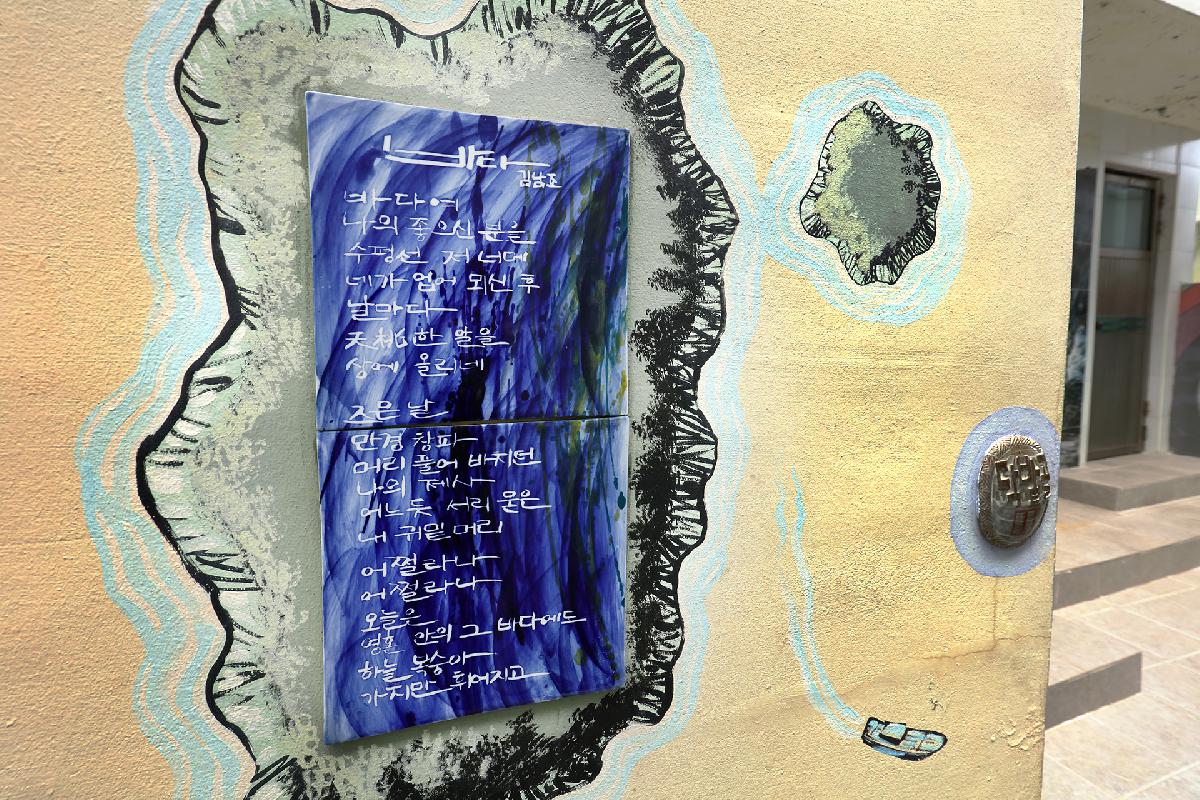 바다
김남조
바다여
나의 좋으신 분을
수평선 저 너메
네가 업어 뫼신 후
날마다
天桃한 뿔을
상에 올리네
조은 날
만경창파
머리 풀어 바치던
나의 제사
어느듯 서리 묻은
내 귀밑머리
어쩔라나
어쩔라나
오늘은
영혼 안의 그 바다에도
하늘 복숭아
가지만 휘어지고